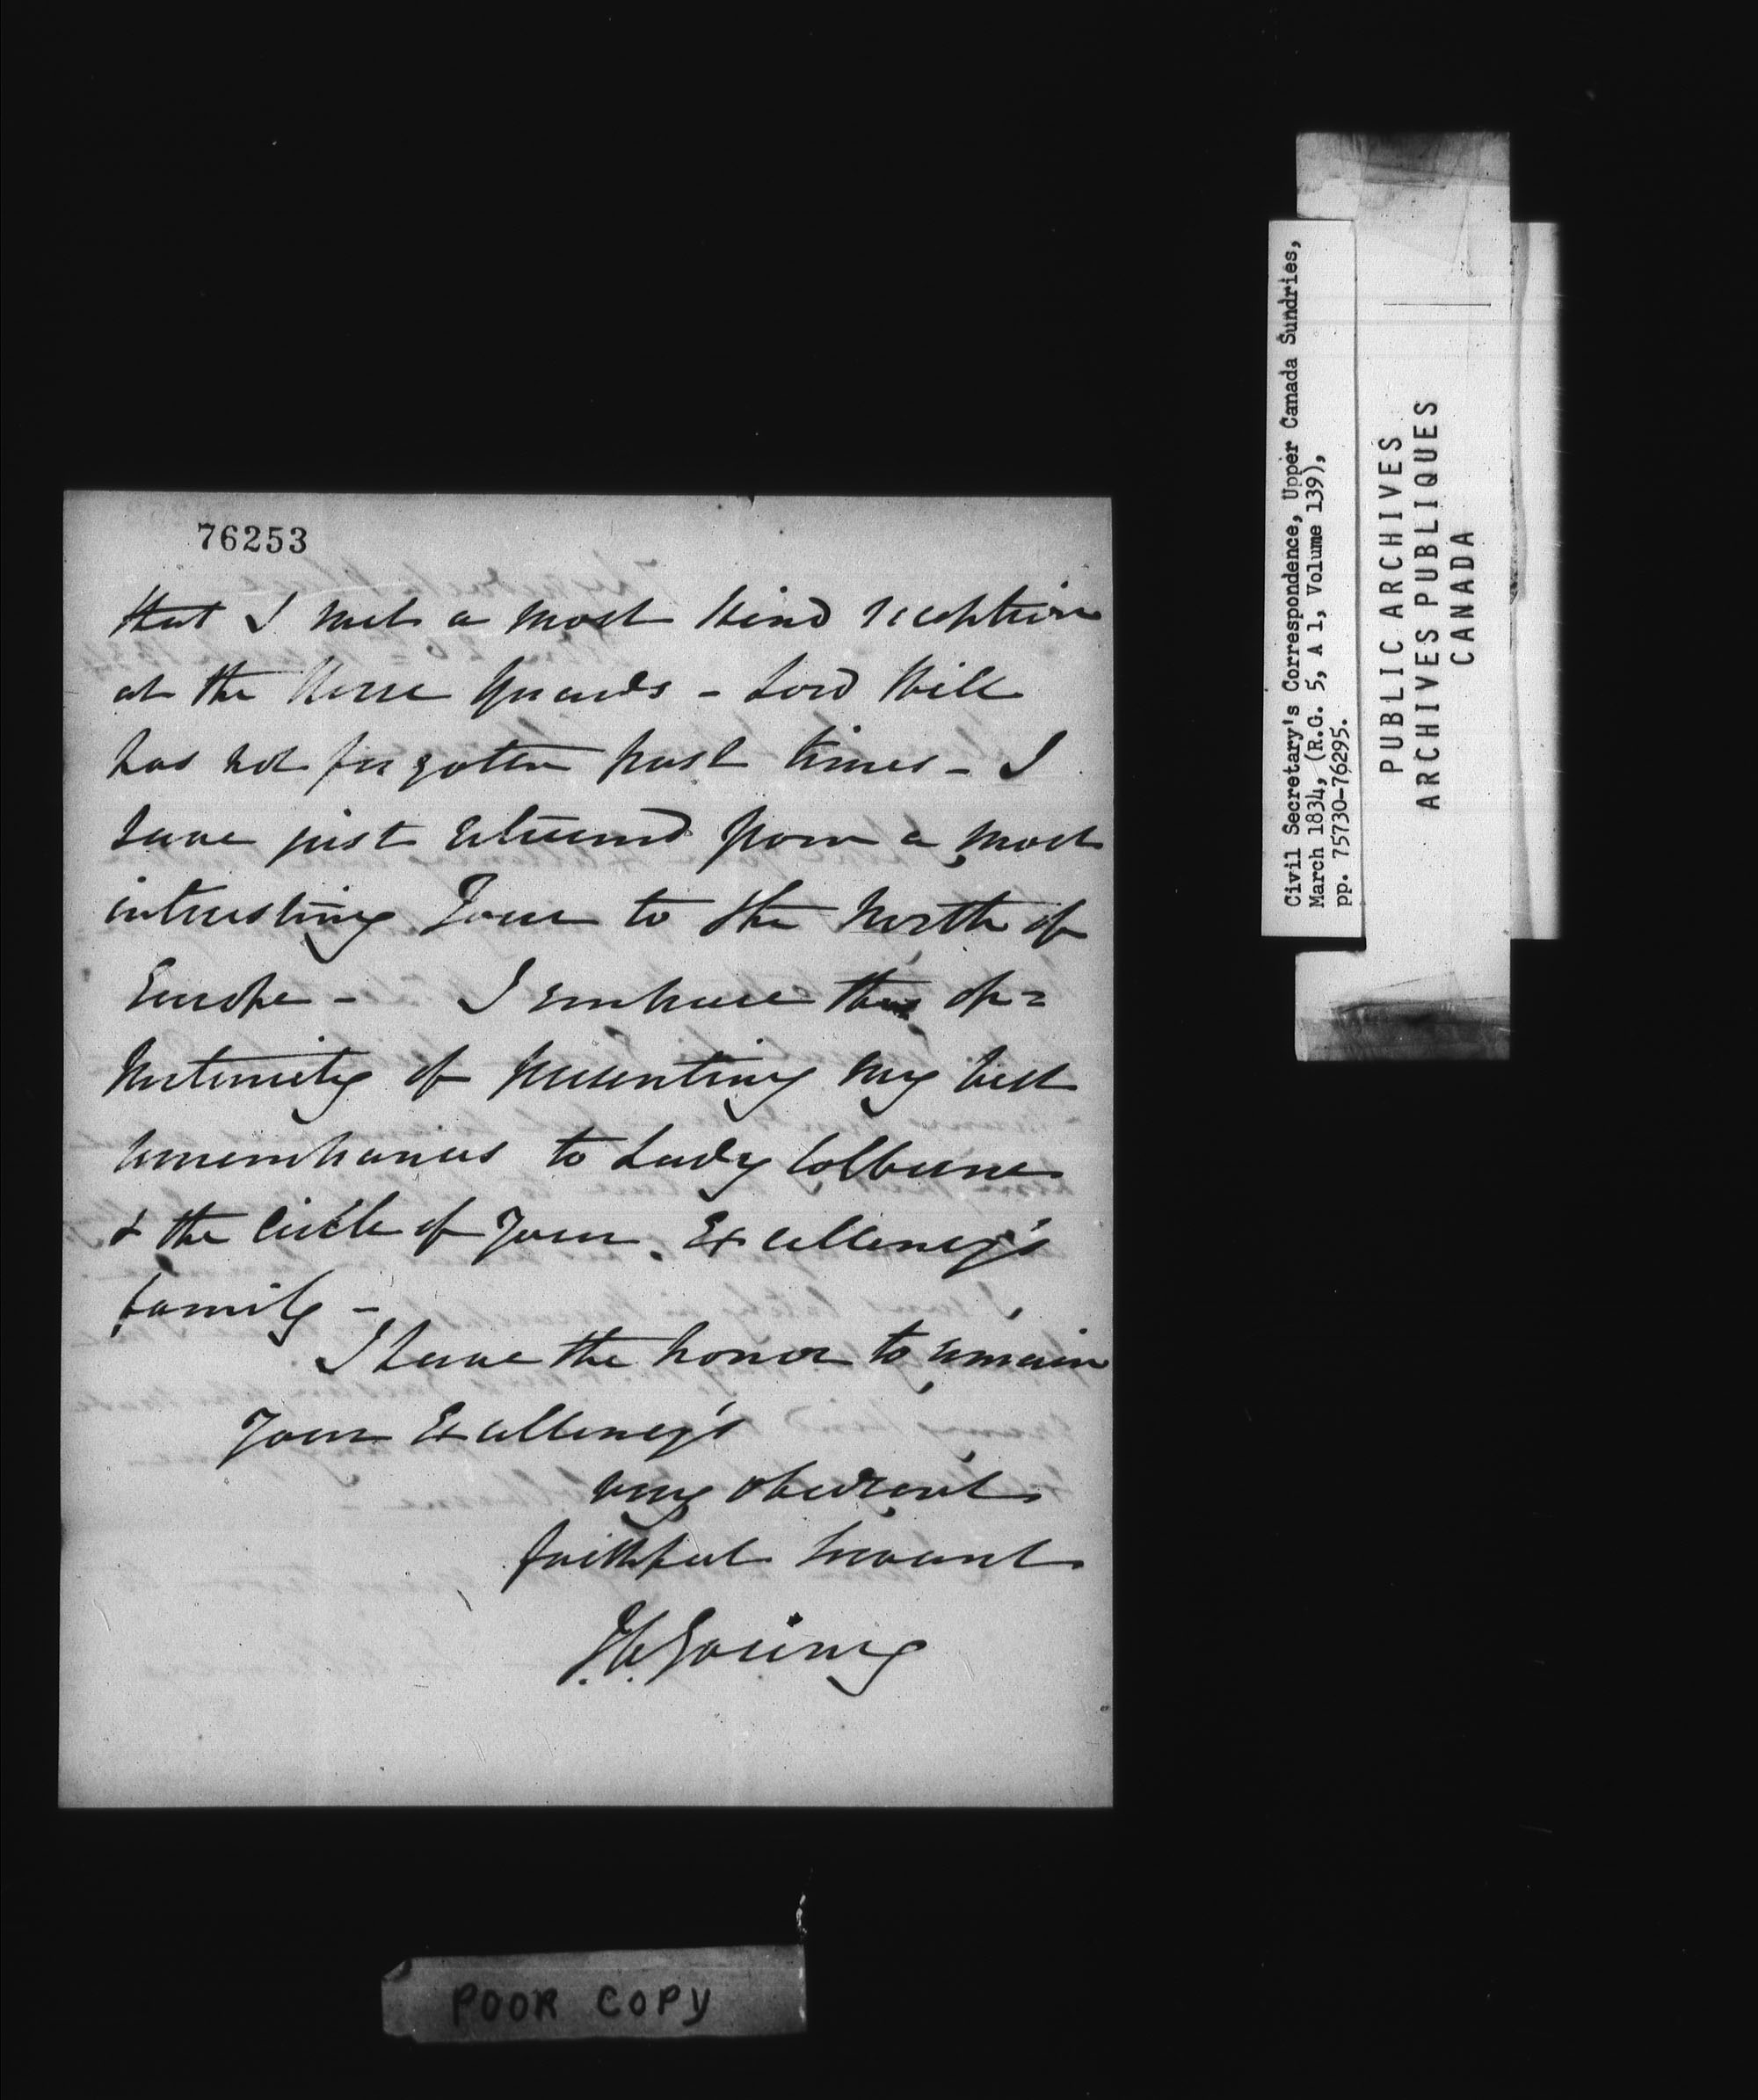 76253
that I met a most kind reception
at the Horse Guards - Lord Hill
has not forgotten past times - I
have just returned from a most
interesting Tour to the North of
Europe - I embrace this op=
portunity of presenting my best
remembrances to Lady Colborne
& the circle of Your Excellency's
family -
I have the honor to remain
Your Excellency's
very obedient
faithful servant
Civil Secretary's Correspondence, Upper Canada Sundries,
March 1834, (R.G. 5, A 1, Volume 139),
pp. 75730-76295.
PUBLIC ARCHIVES
ARCHIVES PUBLIQUES
CANADA
POOR COPY